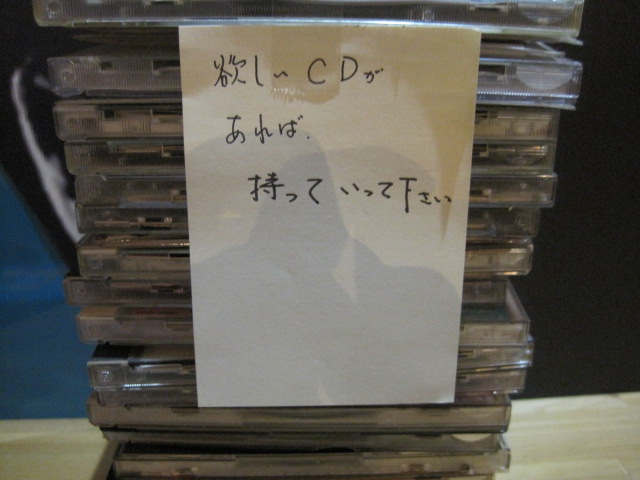 欲しい CDが
あれば、
持っていって下さい